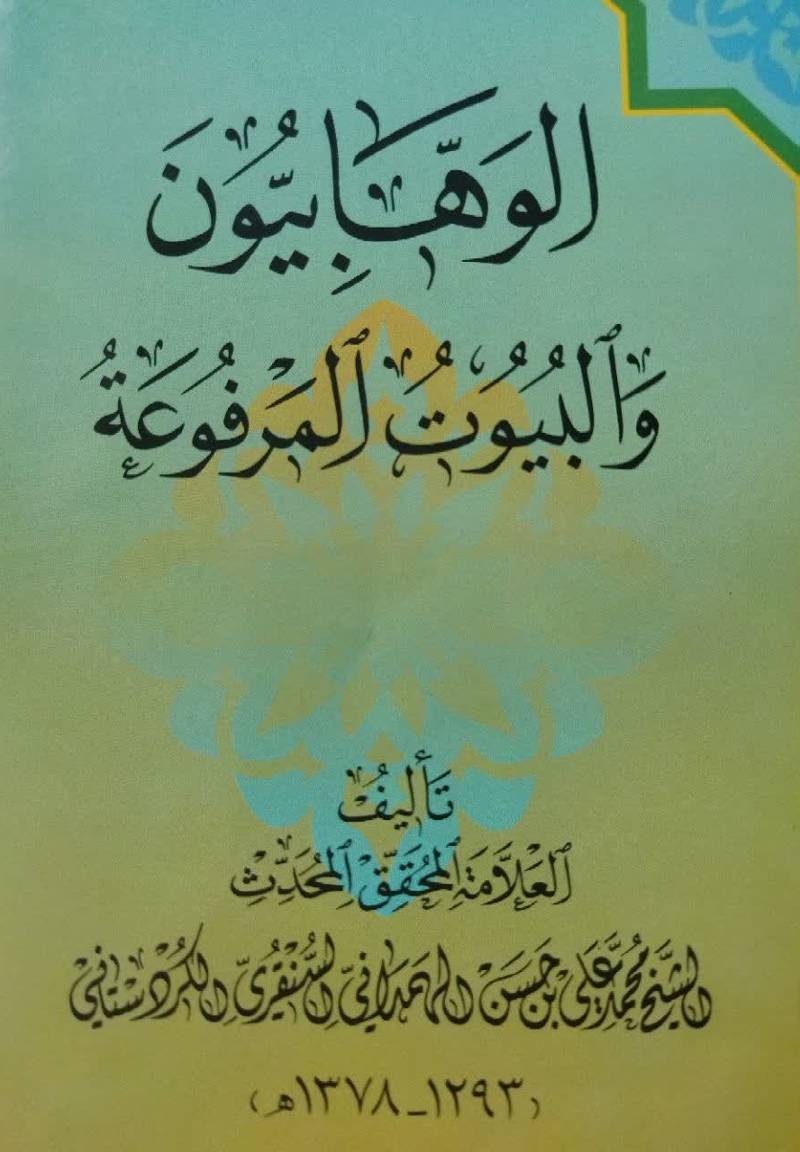 الوَهَّابِيُّونَ
وَٱلْبُيُوتُ ٱلْمَرْفُوعَةُ
تَأْلِيفُ
ٱلْعَلَّامَةِ ٱلْمُحَقِّقِ ٱلْمُحَدِّثِ
الشَّيْخ مُحَمَّد عَلِي بْن حَسَنْ الهَمَدَانِيِّ السُّنْقُرِيِّ الكُرْدِسْتَانِي
(١٢٩٣ - ١٣٧٨ هـ)